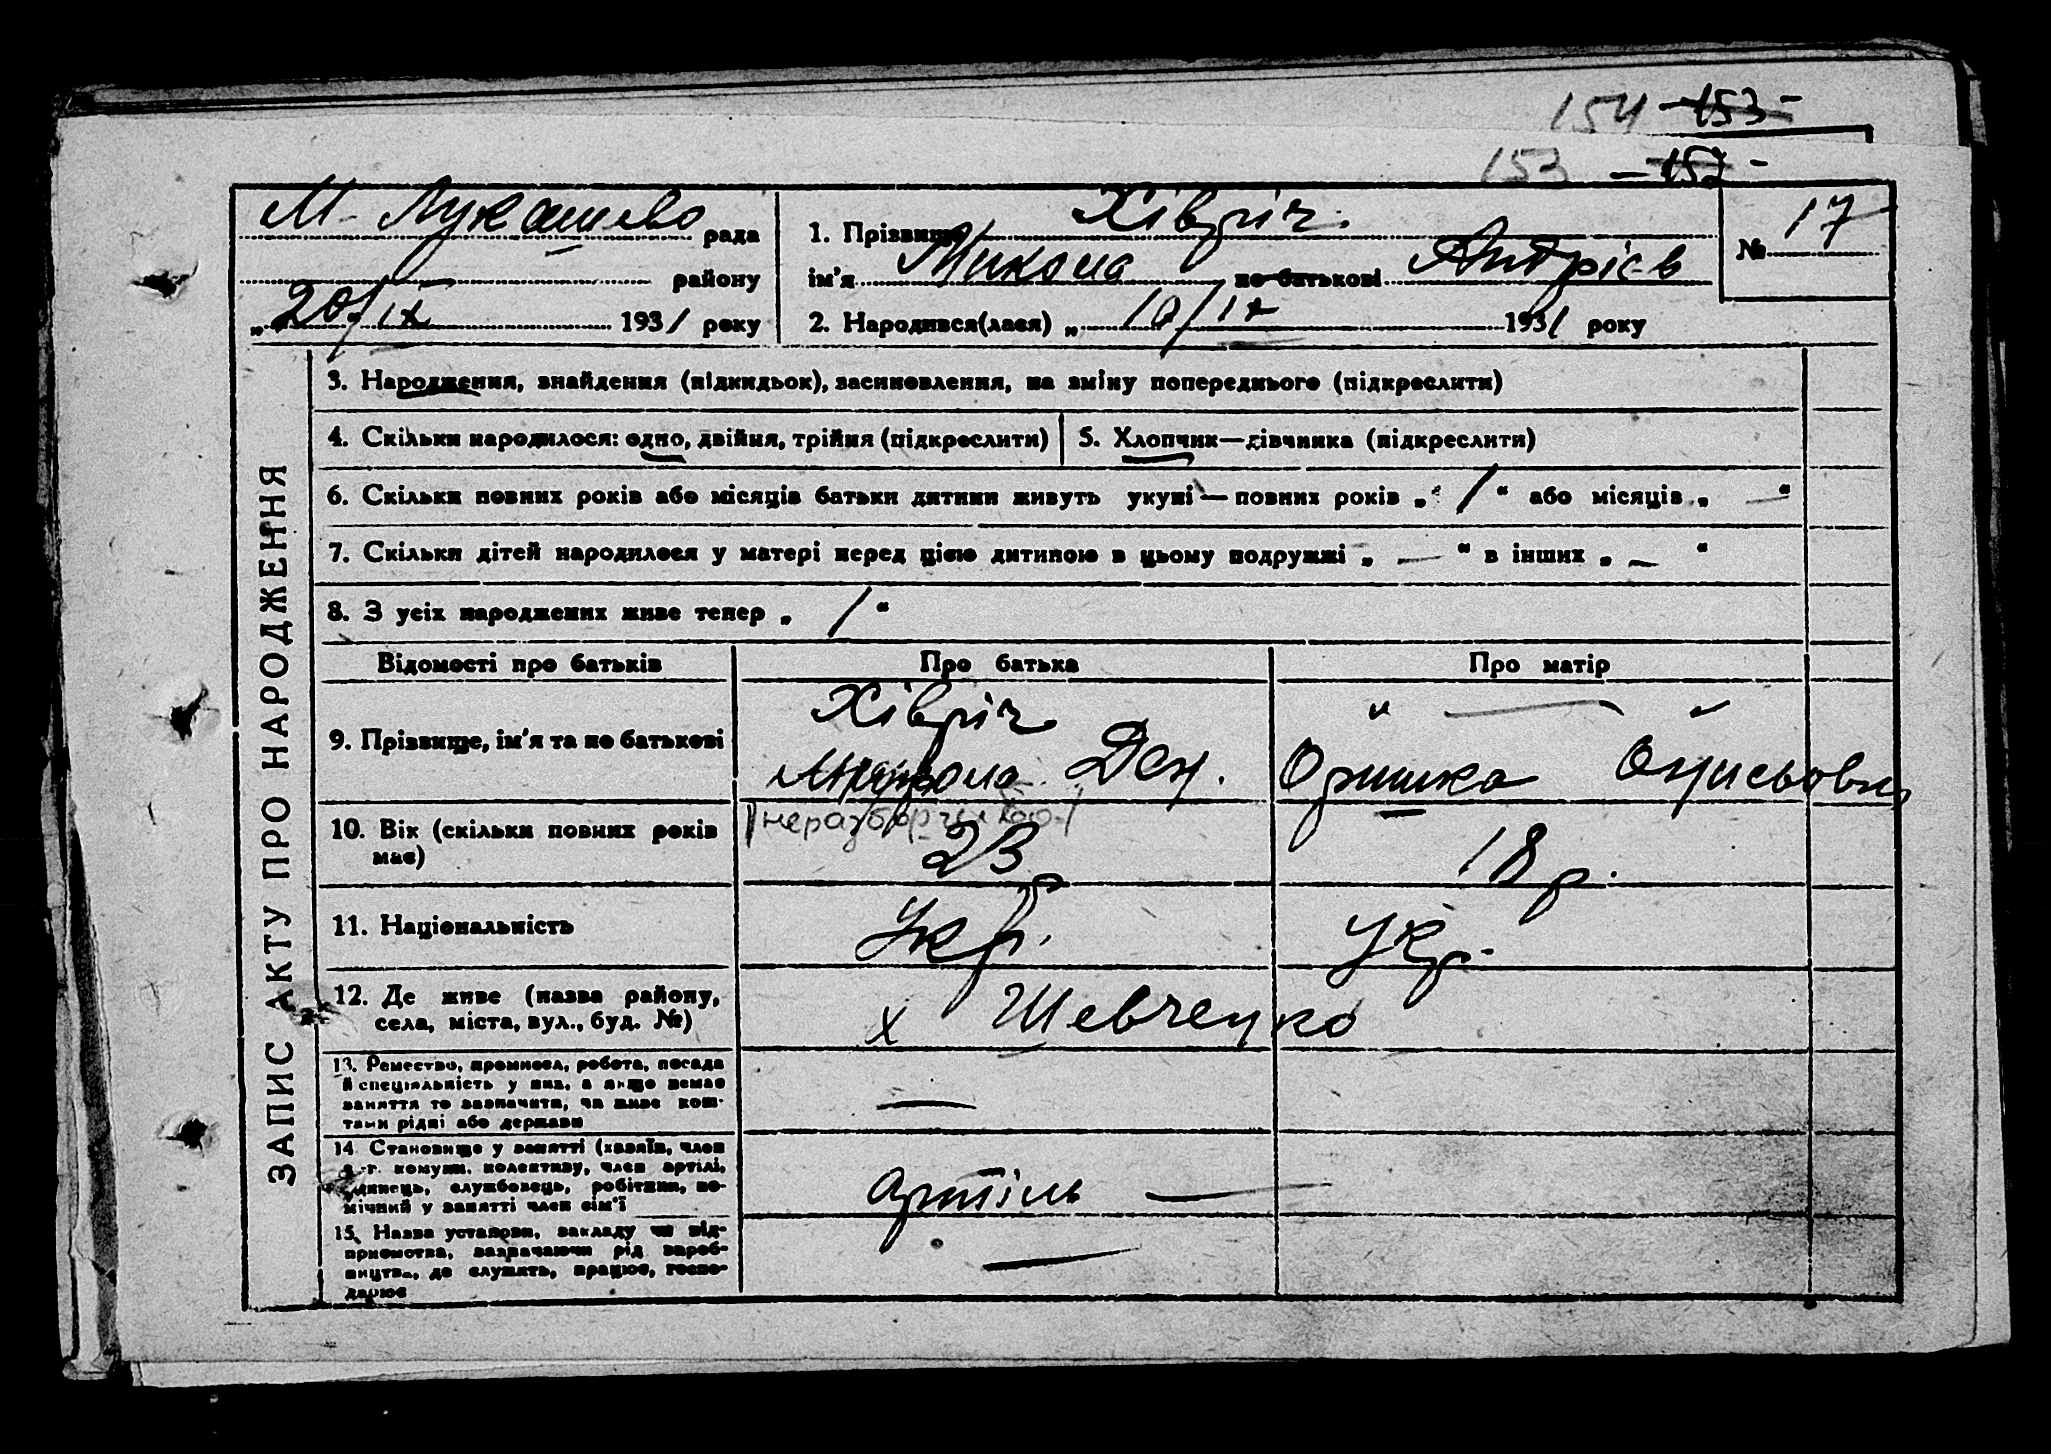 154 -153-
153 -152-
М-Лукашево рада
району
„20/IX 1931 року
1. Прізвище Хівріч
ім'я Микола по батькові Андрієв
2. Народився(лася) „ 10/IX 1931 року
№ 17
ЗАПИС АКТУ ПРО НАРОДЖЕННЯ
3. Народження, знайдення (підкидьок), засиновлення, на зміну попереднього (підкреслити)
4. Скільки народилося: одно, двійня, трійня (підкреслити)
5. Хлопчик—дівчинка (підкреслити)
6. Скільки повних років або місяців батьки дитини живуть укупі — повних років „ 1 “ або місяців „ — “
7. Скільки дітей народилося у матері перед цією дитиною в цьому подружжі „ — “ в інших „ — “
8. З усіх народжених живе тепер „ 1 “
Відомості про батьків Про батька Про матір
9. Прізвище, ім'я та по батькові
Хівріч
Ден.
" — "
Оришка
10. Вік (скільки повних років
має)
/неразборчиво/
23 р
18 р.
11. Національність Укр. Укр.
12. Де живе (назва району,
села, міста, вул., буд. №)
х Шевченко
13. Ремество, промисел, робота, посада
й спеціяльність у них, а якщо немає
заняття то зазначити, чи живе кош-
тами рідні або держави
—
14 Становище у занятті (хазяїн, член
с.-г. комуни, колективу, член артілі,
одинець, службовець, робітник, по-
мічний у занятті член сім'ї
артіль —
15. Назва установи, закладу чи під-
приємства, зазначаючи рід вироб-
ництва, де служить, працює, госпо-
дарює
—